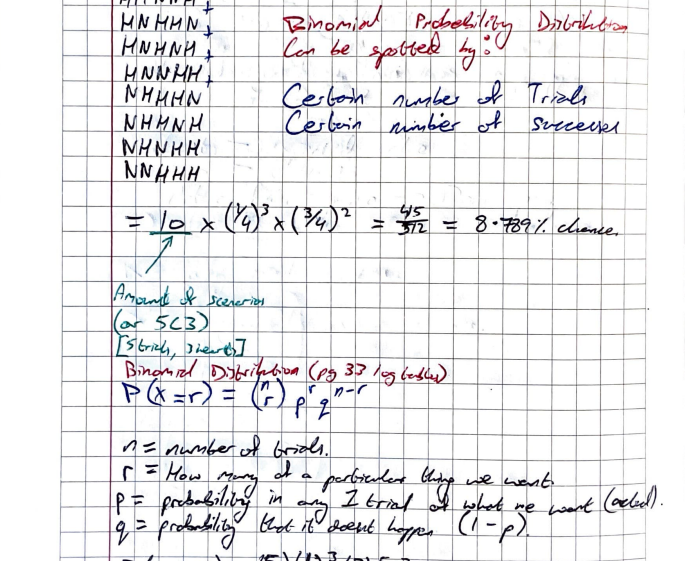 HNHHN +
HNHNH +
HNNHH +
NHHHN
NHHNH
NHNHH
NNHHH
Binomial Probability Distribution
Can be spotted by:
Certain number of Trials
Certain number of successes
= 10 × (1/4)³ × (3/4)² = 45/512 = 8.789% chance.
Amount of scenarios
(or 5C3)
[5 trials, 3 hearts]
Binomial Distribution (pg 33 log tables)
P(X=r) = (n r) p^r q^n-r
n = number of trials.
r = How many of a particular thing we want.
p = probability in any 1 trial of what we want
q = probability that it doesnt happen (1-p).